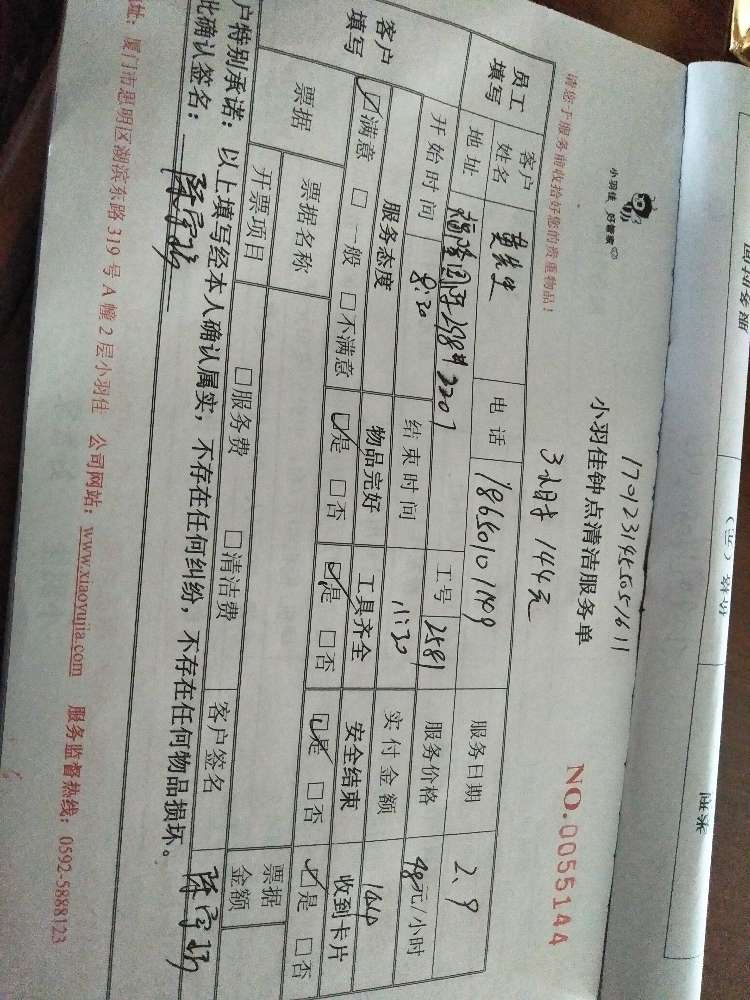 小羽佳 好管家
1709231455051611
小羽佳钟点清洁服务单
NO.0055144
请您于服务前收拾好您的贵重物品！
3小时 144元
员工填写
客户姓名 黄先生 电话 18650101149 服务日期 2、9
地址 工号 2581 服务价格 48元/小时
开始时间 8:30 结束时间 11:30 实付金额 144
客户填写
服务态度 物品完好 工具齐全 安全结束 收到卡片
☑满意 □一般 □不满意 ☑是 □否 ☑是 □否 ☑是 □否 ☑是 □否
票据
票据名称 票据金额
开票项目 □服务费 □清洁费 客户签名
户特别承诺：以上填写经本人确认属实，不存在任何纠纷，不存在任何物品损坏。
此确认签名：
址：厦门市思明区湖滨东路319号A幢2层小羽佳 公司网站：www.xiaoyujia.com 服务监督热线：0592-5888123